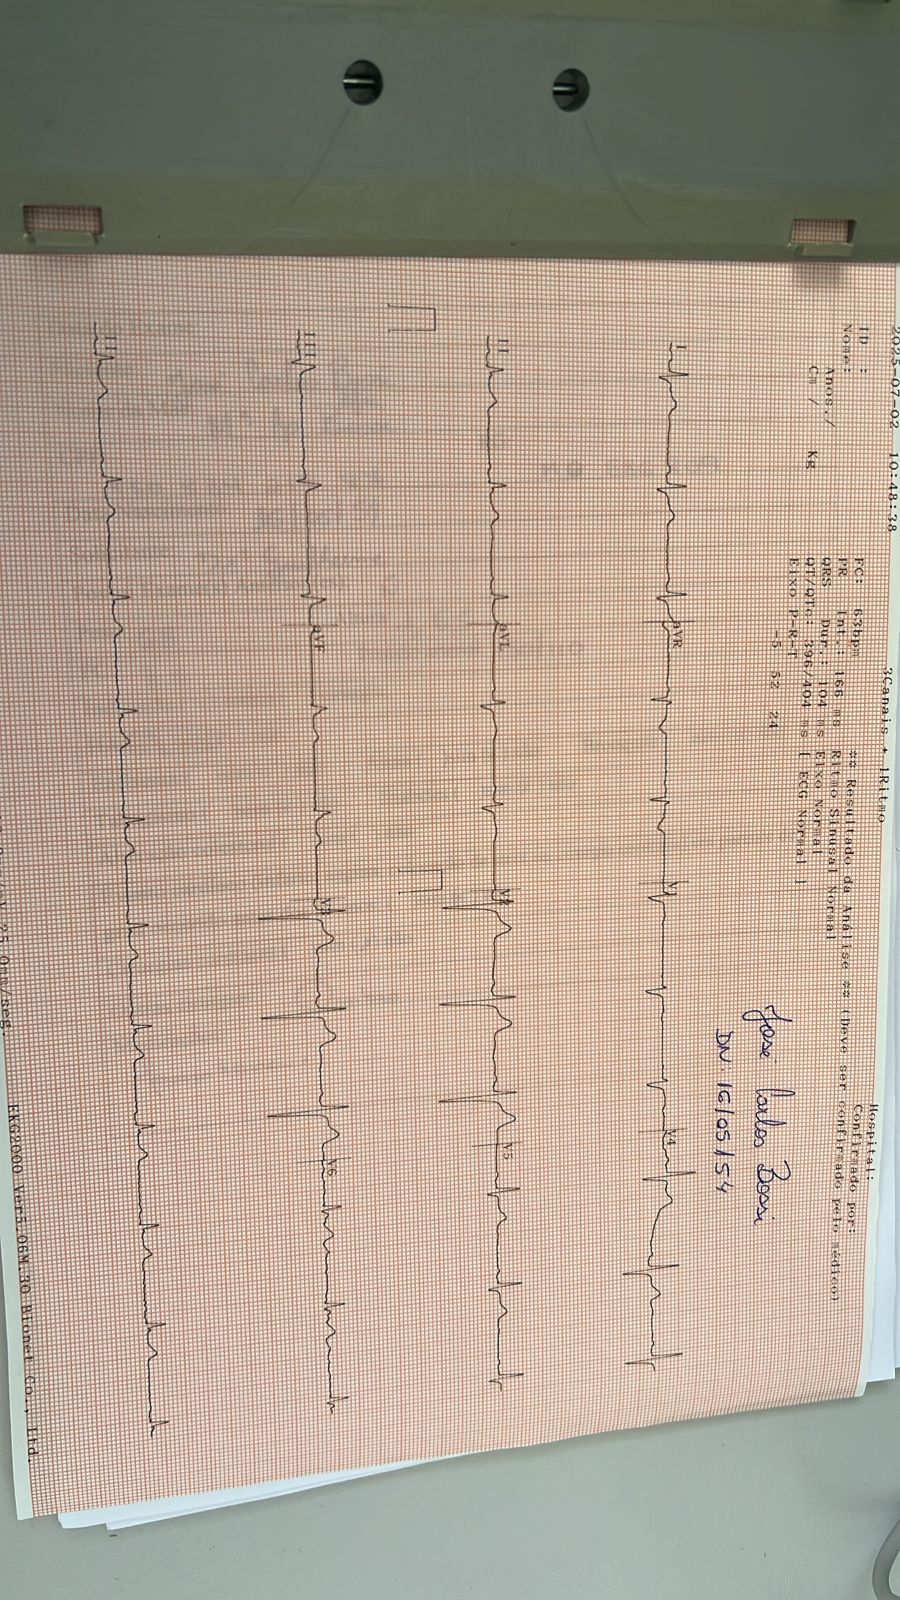 2025-07-02 10:48:38
3Canais + 1Ritmo
Hospital:
ID :
Nome:
Anos./
Cm / Kg
FC: 63bpm
PR Int.: 166 ms
QRS Dur.: 104 ms
QT/QTc: 396/404 ms
Eixo P-R-T
-5 52 24
** Resultado da Análise ** (Deve ser confirmado pelo médico)
Ritmo Sinusal Normal
Eixo Normal
[ ECG Normal ]
Confirmado por:
Jose Carlos Bossi
DN: 16/05/54
I aVR V1 V4
II aVL V2 V5
III aVF V3 V6
II
25.0mm/seg.
EKG2000 Ver5.06M.30 Bionet Co., Ltd.